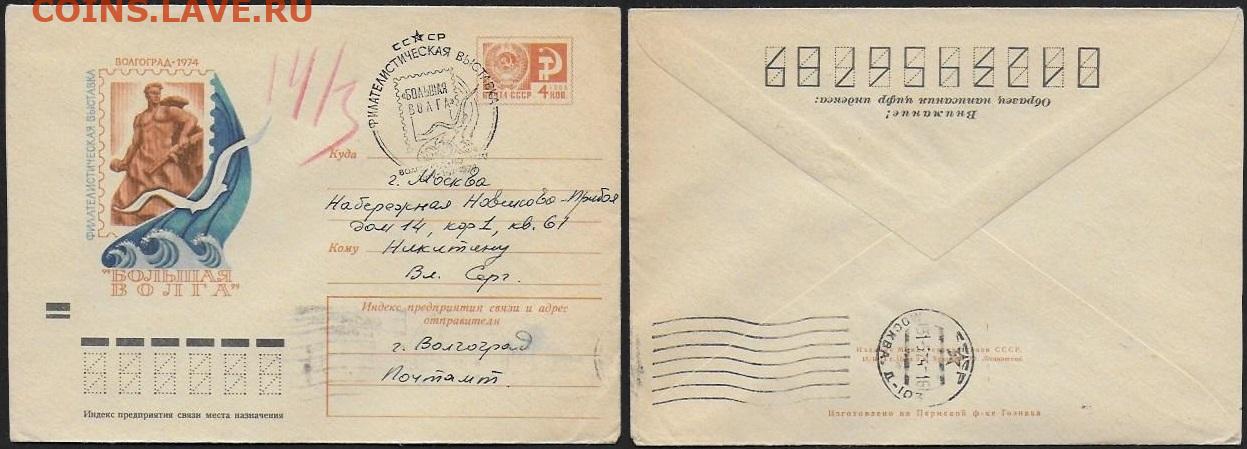 COINS.LAVE.RU
ВОЛГОГРАД-1974
ФИЛАТЕЛИСТИЧЕСКАЯ ВЫСТАВКА
"БОЛЬШАЯ
ВОЛГА"
14/3
СССР
ФИЛАТЕЛИСТИЧЕСКАЯ ВЫСТАВКА
БОЛЬШАЯ
ВОЛГА
ПОЧТА СССР
4
КОП.
Куда
г. Москва
Набережная Новикова-Прибоя
дом 14, кор 1, кв. 61
Кому
Никитину
Вл. Серг.
Индекс предприятия связи и адрес
отправителя
г. Волгоград
Почтамт.
Индекс предприятия связи места назначения
Внимание!
Образец написания цифр индекса:
0123456789
МОСКВА
СССР.
Изготовлено на Пермской ф-ке Гознака